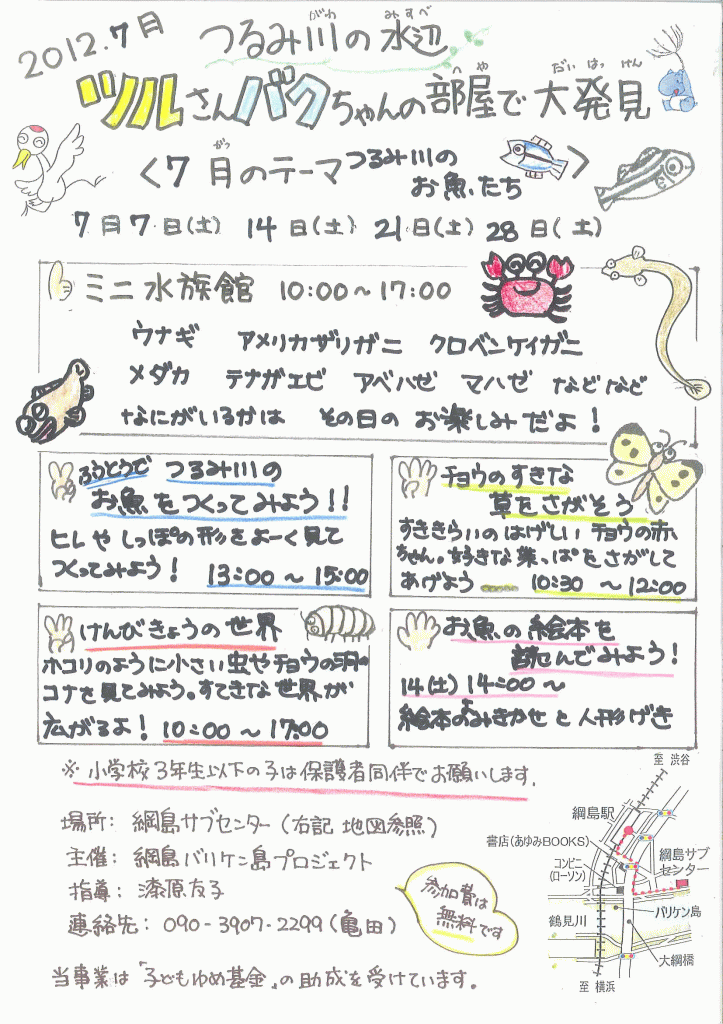 2012.7月
つるみ川の水辺
がわ みずべ
ツルさんバクちゃんの部屋で大発見
へや だいはっけん
<7月のテーマ つるみ川の
がつ
お魚たち>
7月7日(土) 14日(土) 21日(土) 28日(土)
ミニ水族館 10:00~17:00
ウナギ アメリカザリガニ クロベンケイガニ
メダカ テナガエビ アベハゼ マハゼ などなど
なにがいるかは その日のお楽しみだよ!
ふうとうで つるみ川の
お魚をつくってみよう!!
ヒレやしっぽの形をよーく見て
つくってみよう! 13:00~15:00
チョウのすきな
草をさがそう
すききらいのはげしいチョウの赤
ちゃん。好きな葉っぱをさがして
あげよう 10:30 ~12:00
けんびきょうの世界
ホコリのように小さい虫やチョウの羽の
コナを見てみよう。すてきな世界が
広がるよ! 10:00~17:00
お魚の絵本を
読んでみよう!
14(土) 14:00~
絵本のよみきかせと人形げき
※小学校3年生以下の子は保護者同伴でお願いします.
場所: 綱島サブセンター(右記 地図参照)
主催: 綱島バリケン島プロジェクト
指導: 漆原友子
連絡先: 090-3907-2299(亀田)
参加費は
無料です
当事業は「子どもゆめ基金」の助成を受けています。
至 渋谷
綱島駅
書店(あゆみBOOKS)
コンビニ
(ローソン)
綱島サブ
センター
バリケン島
鶴見川
大綱橋
至 横浜